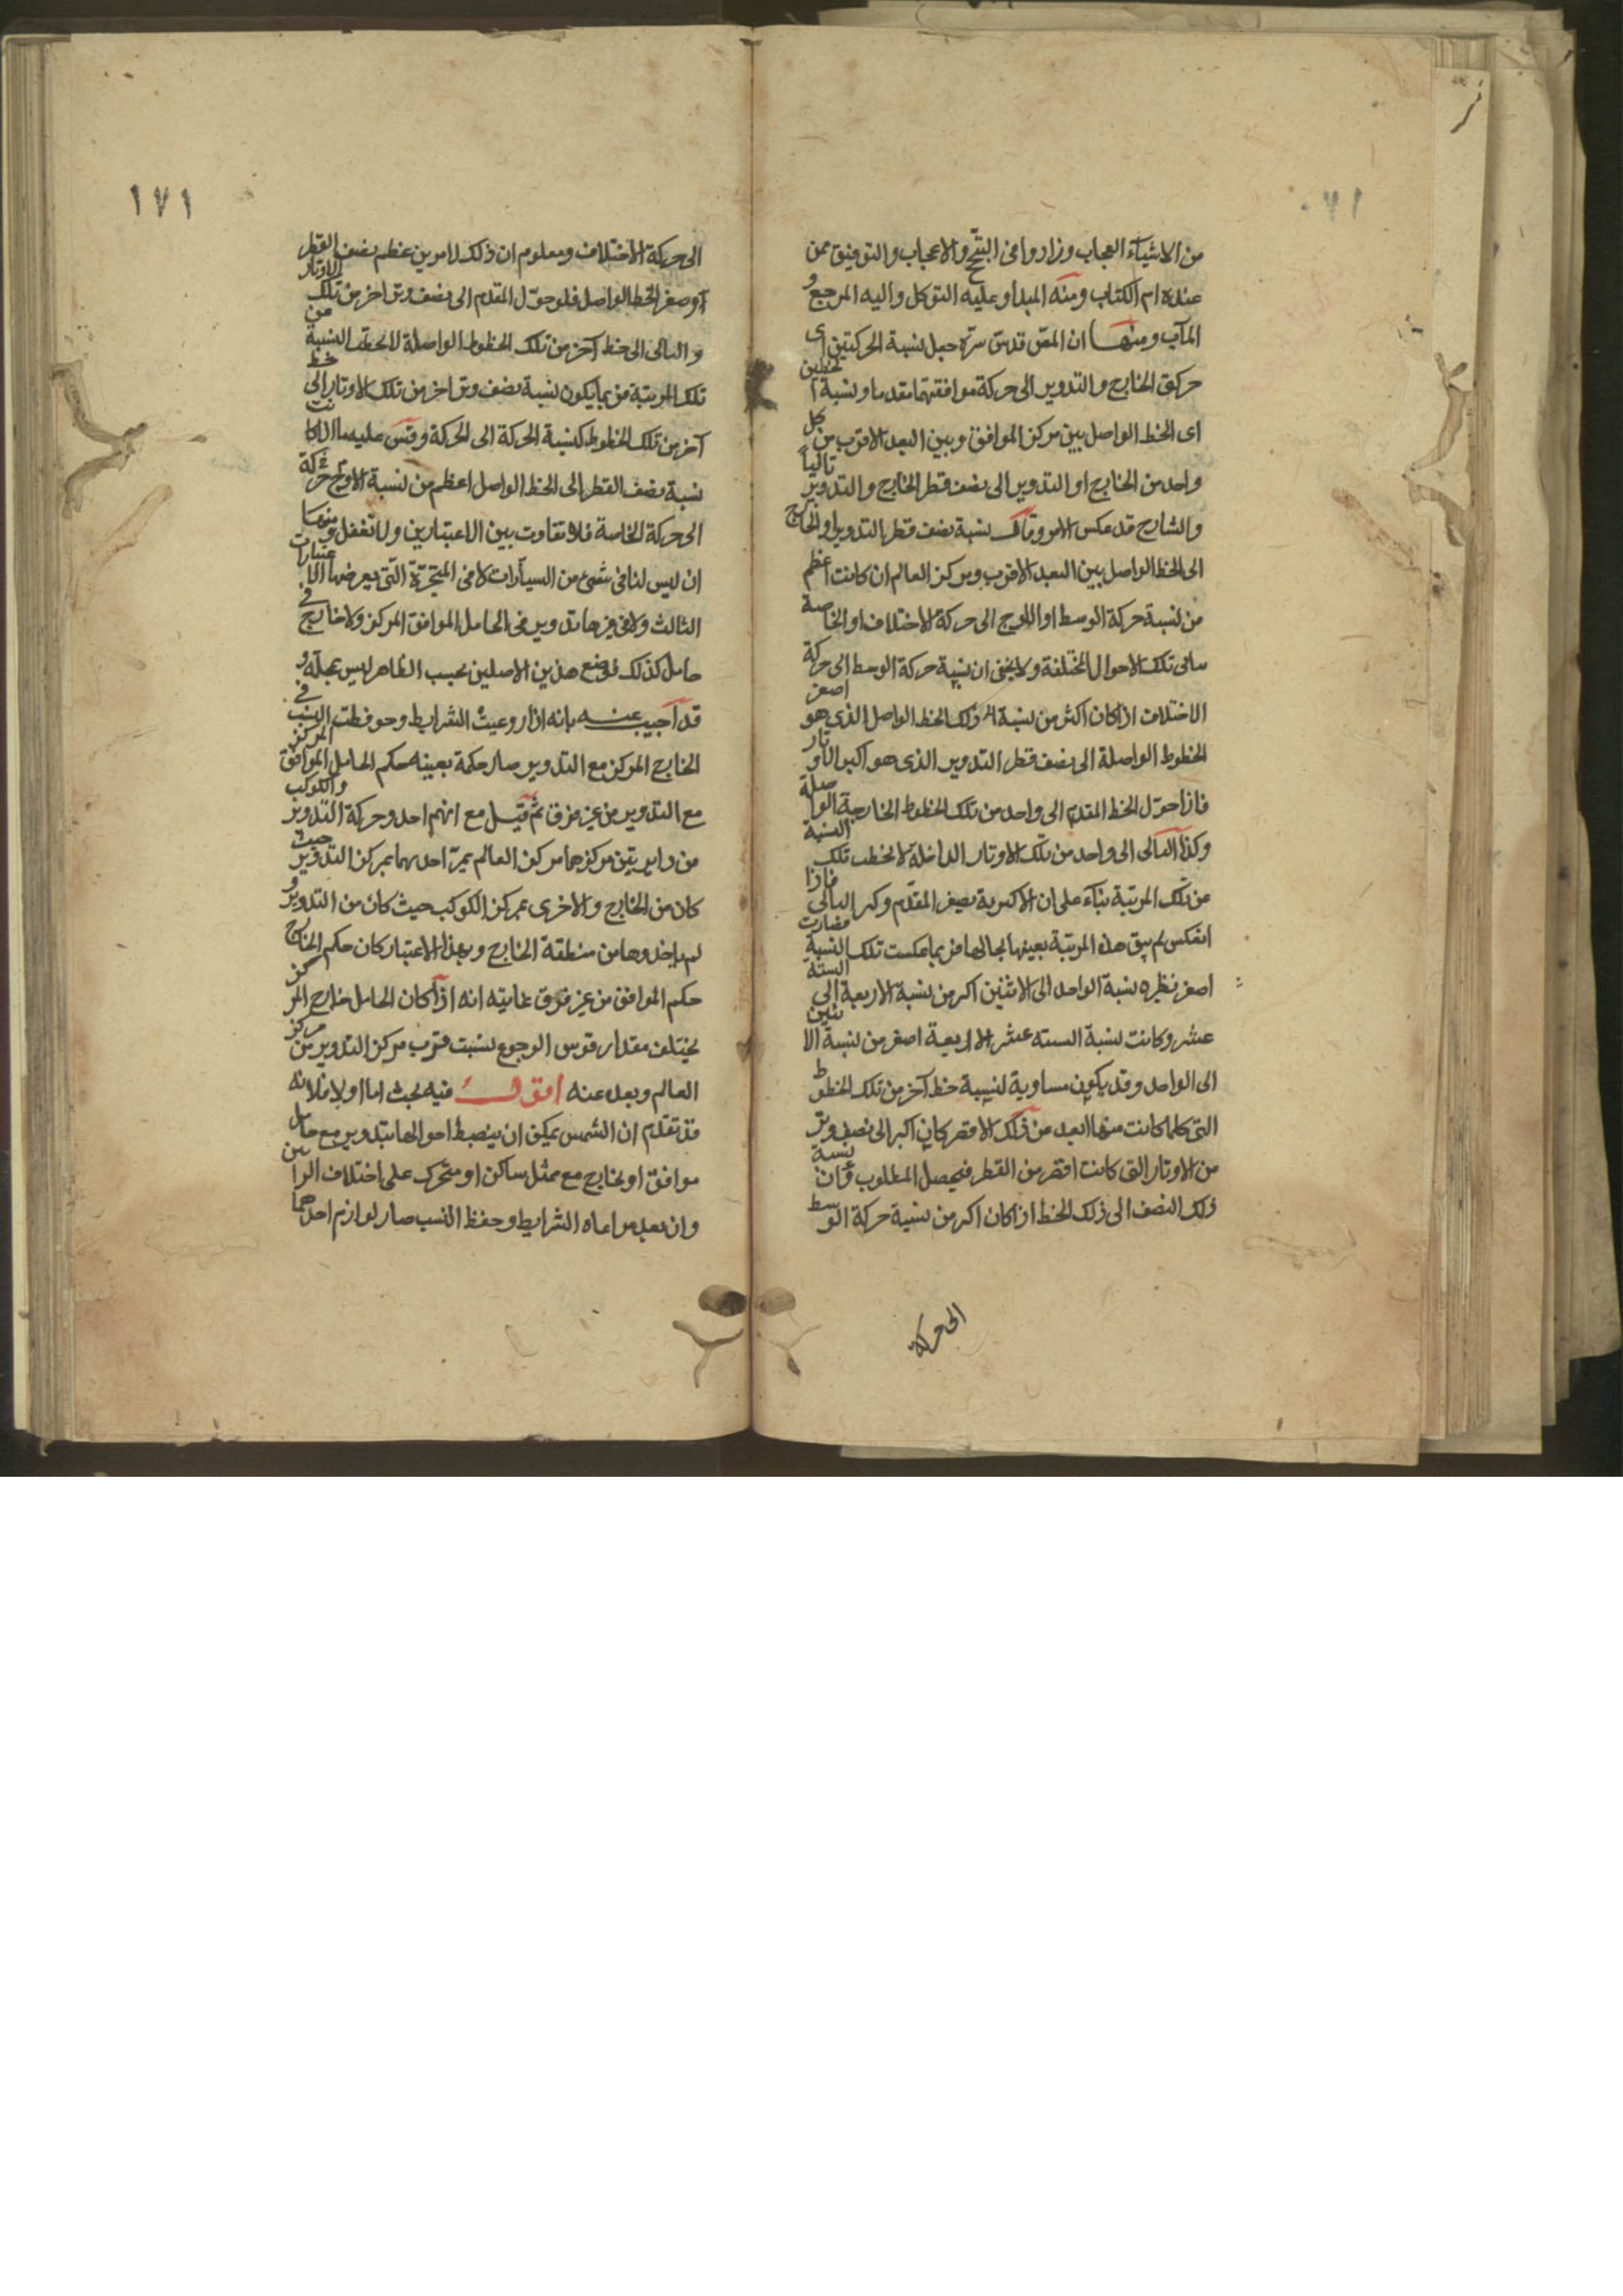 من الاشياء العجاب وزادوا فى التبجح والاعجاب والتوفيق ممن
عنده ام الكتاب ومنه المبدأ وعليه التوكل واليه المرجع و
المآب ومنها ان المص قدس سره جعل نسبة الحركتين اى
حركتى الخارج والتدوير الى حركة موافقتهما مقدما ونسبة الخطين
اى الخط الواصل بين مركز الموافق وبين البعد الاقرب من كل
واحد من الخارج او التدوير الى نصف قطر الخارج والتدوير تالياً
والشارح قد عكس الامر وقال نسبة نصف قطر التدوير او الخارج
الى الخط الواصل بين البعد الاقرب ومركز العالم ان كانت اعظم
من نسبة حركة الوسط او الاوج الى حركة الاختلاف او الخاصة
ساق تلك الاحوال المختلفة ولا يخفى ان نسبة حركة الوسط الى حركة
الاختلاف اذا كان اكثر من نسبة ذلك الخط الواصل الذى هو اصغر
الخطوط الواصلة الى نصف قطر التدوير الذى هو اكبر الاوتار
فاذا حول الخط المقدم الى واحد من تلك الخطوط الخارجة الواصلة
وكذا التالى الى واحد من تلك الاوتار الداخلة لانحطت تلك النسبة
من تلك المرتبة بناء على ان الاكبرية بصغر المقدم وكبر التالى فاذا
انعكس لم يبق هذه المرتبة بعينها بحالها فربما عكست تلك النسبة فصارت
اصغر نظيره نسبة الواحد الى الاثنين اكبر من نسبة الاربعة الى الستة
عشر وكانت نسبة الستة عشر الى الاربعة اصغر من نسبة الاثنين
الى الواحد وقد يكون مساوية لنسبة خط آخر من تلك الخطوط
التى كلما كانت منها ابعد من ذلك الاقصر كان اكبر الى نصف وتر
من الاوتار التى كانت اقصر من القطر فيحصل المطلوب وان نسبة
ذلك النصف الى ذلك الخط اذا كان اكبر من نسبة حركة الوسط
الى حركة
١٧١
الى حركة الاختلاف ومعلوم ان ذلك لامرين عظم نصف القطر
او صغر الخط الواصل فلو حول المقدم الى نصف وتر آخر من تلك الاوتار
والتالى الى خط آخر من تلك الخطوط الواصلة لانحطت النسبة من
تلك المرتبة فربما يكون نسبة نصف وتر آخر من تلك الاوتار الى خط
آخر من تلك الخطوط كنسبة الحركة الى الحركة وقس عليه ما اذا كانت
نسبة نصف القطر الى الخط الواصل اعظم من نسبة الاوج حركة
الى حركة الخاصة فلا تفاوت بين الاعتبارين ولا تغفل ومنها
ان ليس لنا فى شىء من السيارات لا فى المتحيرة التى يعرضها الاعتبارات
الثالث ولا فى غيرها تدوير فى الحامل الموافق المركز ولا خارج فى
حامل كذلك فوضع هذين الاصلين بحسب الظاهر ليس بجملته و
قد اجيب عنه بانه اذا روعيت الشرايط وحوفظت النسب فى
الخارج المركز مع التدوير صار حكمة بعينه حكم الحامل الموافق المركز
مع التدوير من غير فرق ثم قيل مع انهم احد وحركة التدوير والكوكب
من دايرتين مركزهما مركز العالم يمر احديهما بمركز التدوير حيث
كان من الخارج والاخرى بمركز الكوكب حيث كان من التدوير و
لم ياخذوها من منطقة الخارج وبهذا الاعتبار كان حكم الخارج
حكم الموافق من غير فرق غايته انه اذا كان الحامل خارج المركز
يختلف مقدار قوس الرجوع بسبب قرب مركز التدوير من مركز
العالم وبعده عنه اقول فيه بحث اما اولا فلانه
قد تقدم ان الشمس يمكن ان ينضبط احوالها بتدوير مع حامل
موافق او بخارج مع ممثل ساكن او متحرك على اختلاف الراين
وان بعد مراعاه الشرايط وحفظ النسب صار لوازم احدهما